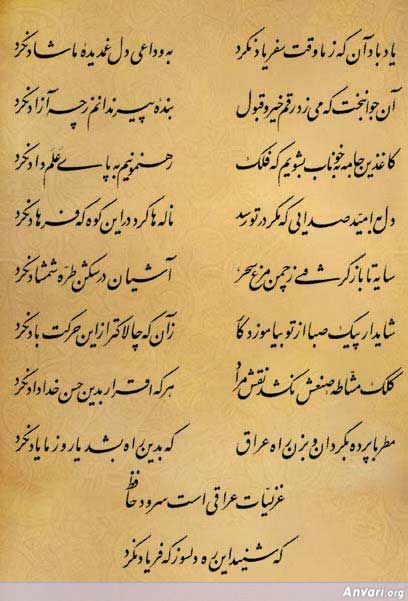 یاد باد آن که ز ما وقت سفر یاد نکرد به وداعی دل غمدیده ما شاد نکرد
آن جوانبخت که می زد رقم خیر و قبول بنده پیر ندانم ز چه آزاد نکرد
کاغذین جامه به خوناب بشویم که فلک رهنمونیم به پای عَلَم داد نکرد
دل به امید صدایی که مگر در تو رسد ناله ها کرد در این کوه که فرهاد نکرد
سایه تا باز گرفتی ز چمن مرغ سحر آشیان در شکن طرّه شمشاد نکرد
شاید ار پیک صبا از تو بیاموزد کار زان که چالاکتر از این حرکت باد نکرد
کلک مشّاطه صنعش نکشد نقش مراد هر که اقرار بدین حسن خداداد نکرد
مطربا پرده بگردان و بزن راه عراق که بدین راه بشد یار و ز ما یاد نکرد
غزلیّات عراقی است سرود حافظ
که شنید این ره دلسوز که فریاد نکرد
Anvari.org